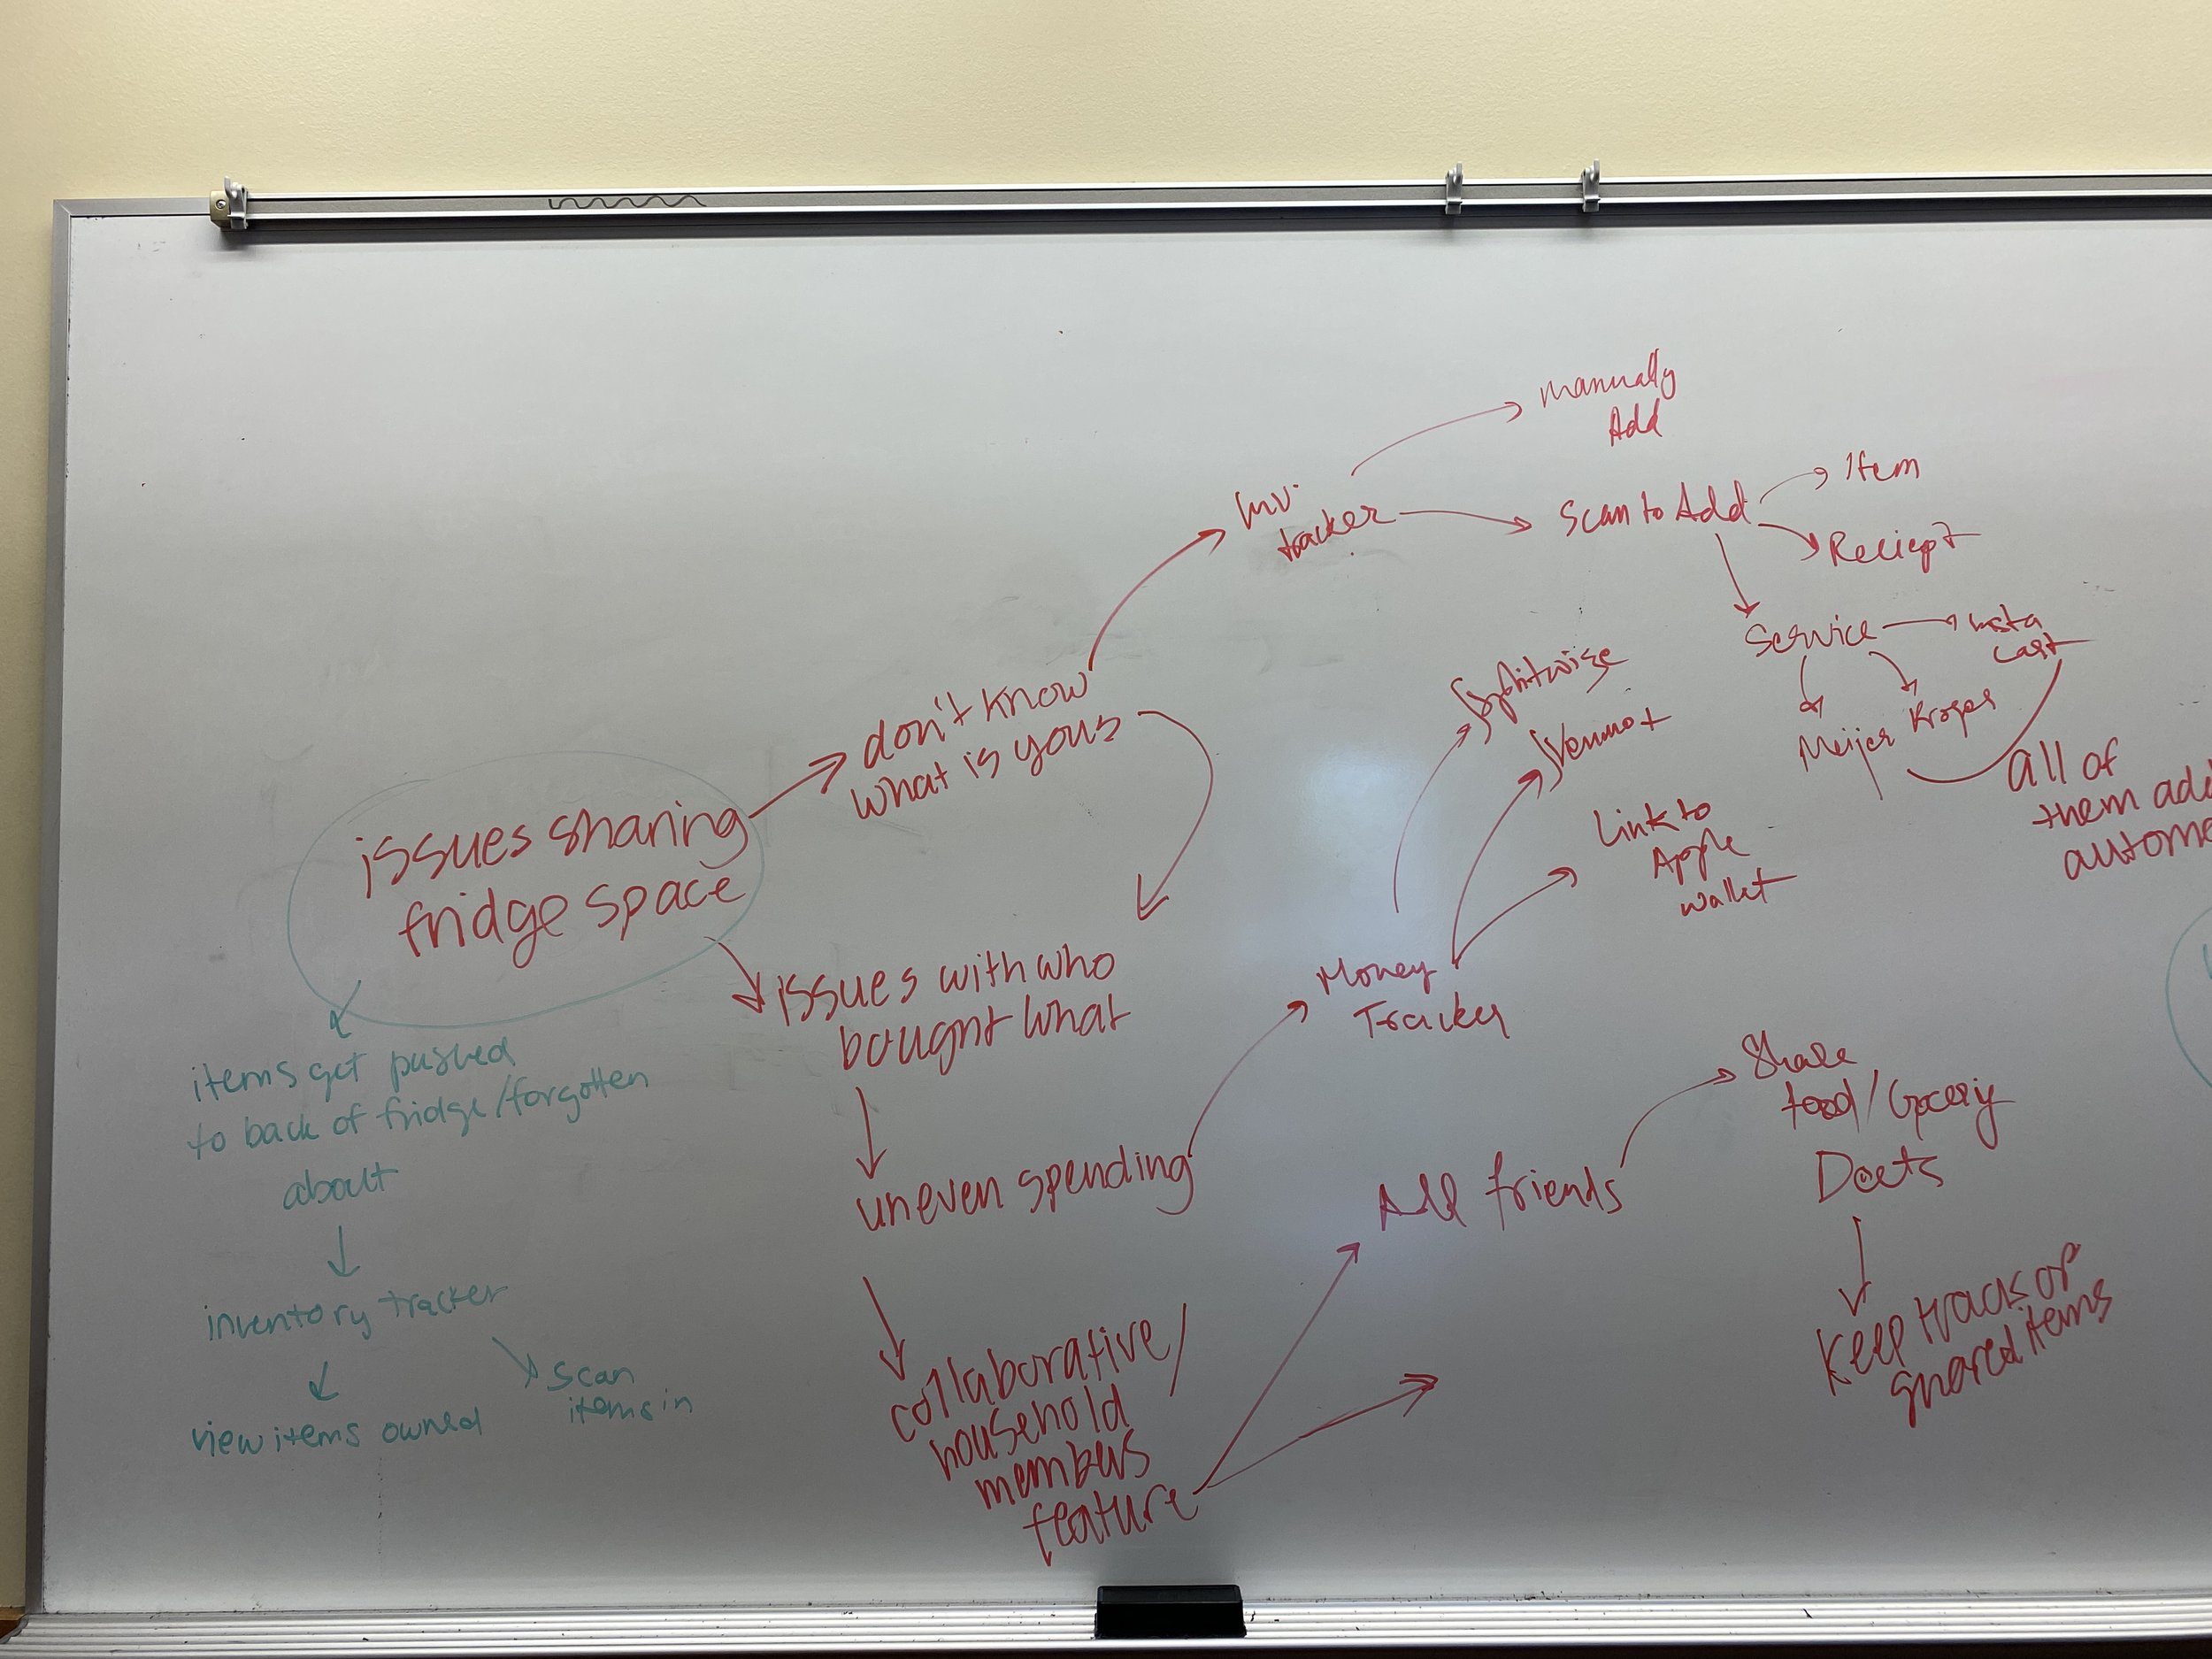 issues sharing
fridge space
don't know
what is yours
issues with who
bought what
uneven spending
collaborative/
household
members
feature
items get pushed
to back of fridge/forgotten
about
inventory tracker
view items owned
scan
items in
inv.
tracker
Manually
Add
Scan to Add
Item
Reciept
Service
Insta
cart
Meijer
Kroger
all of
them
Splitwise
Venmo
Link to
Apple
wallet
Money
Tracker
Add friends
Share
food/Grocery
keep track of
shared items